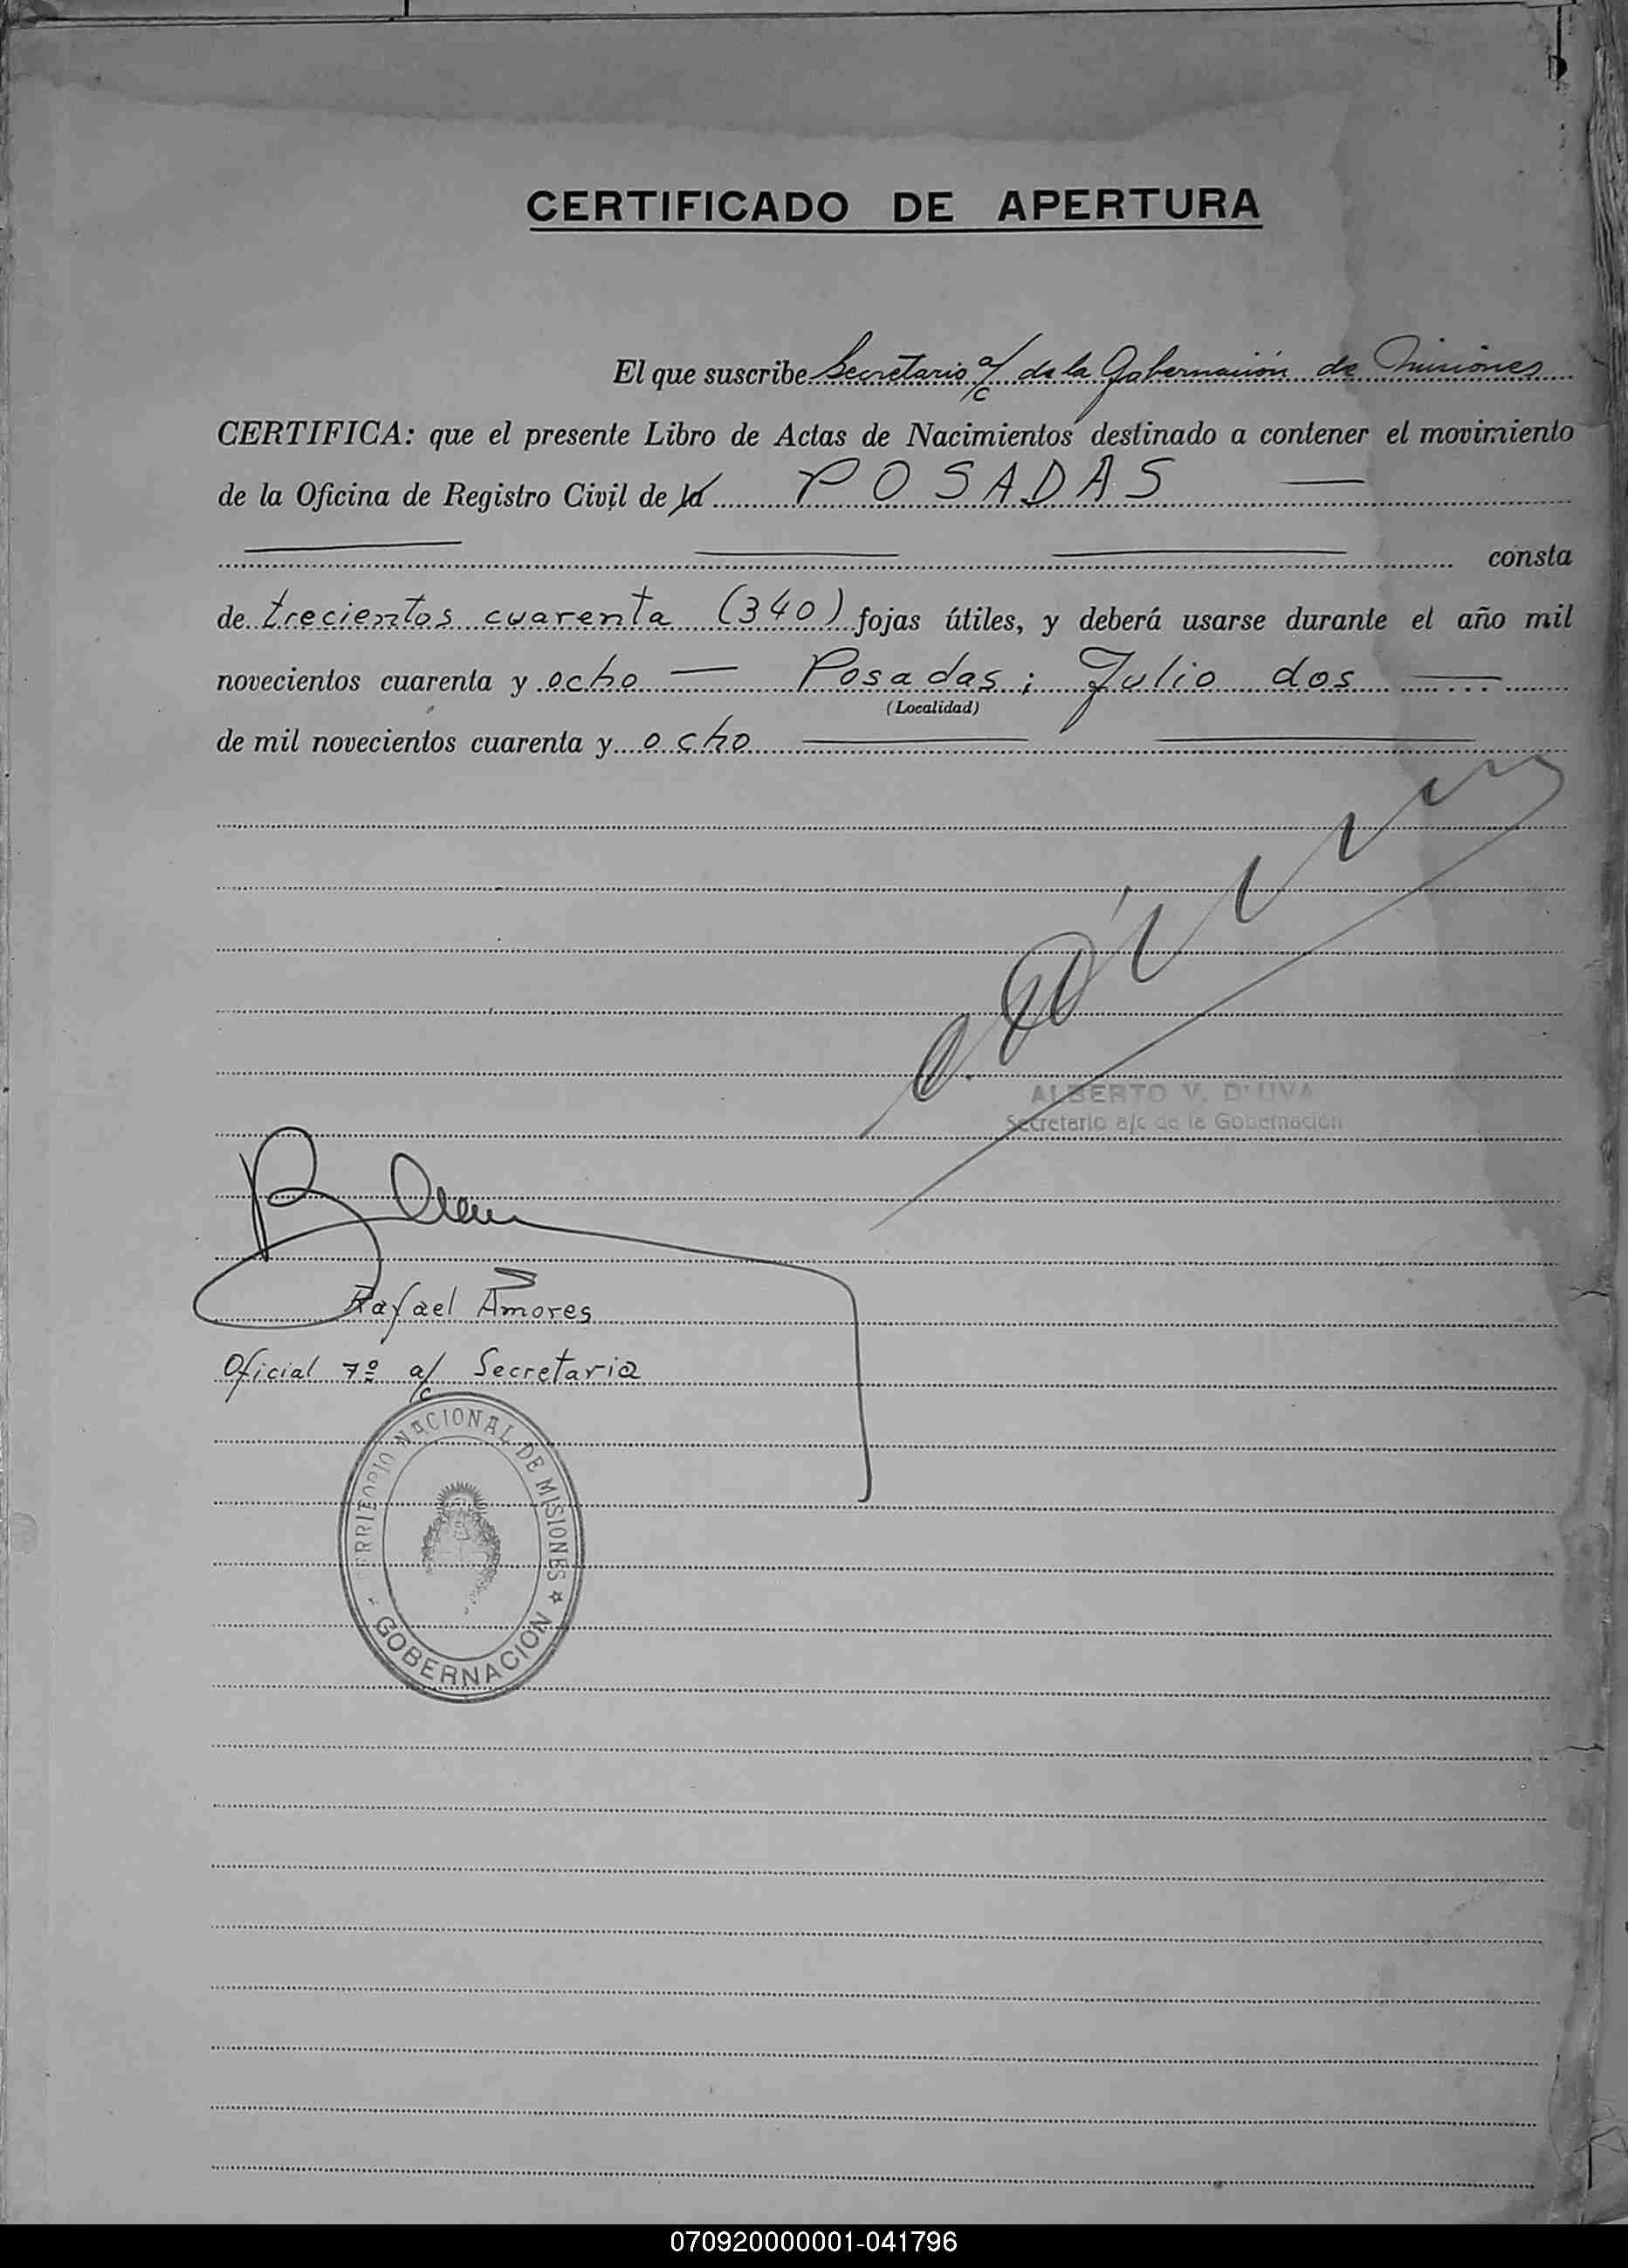 CERTIFICADO DE APERTURA
El que suscribe Secretario a/c de la Gobernación de Misiones
CERTIFICA: que el presente Libro de Actas de Nacimientos destinado a contener el movimiento
de la Oficina de Registro Civil de la POSADAS —
consta
de trecientos cuarenta (340) fojas útiles, y deberá usarse durante el año mil
novecientos cuarenta y ocho — Posadas; Julio dos —
(Localidad)
de mil novecientos cuarenta y ocho
ALBERTO V. D'UVA
Secretario a/c de la Gobernación
Rafael Amores
Oficial 7º a/c Secretaria
TERRITORIO NACIONAL DE MISIONES
GOBERNACION
070920000001-041796